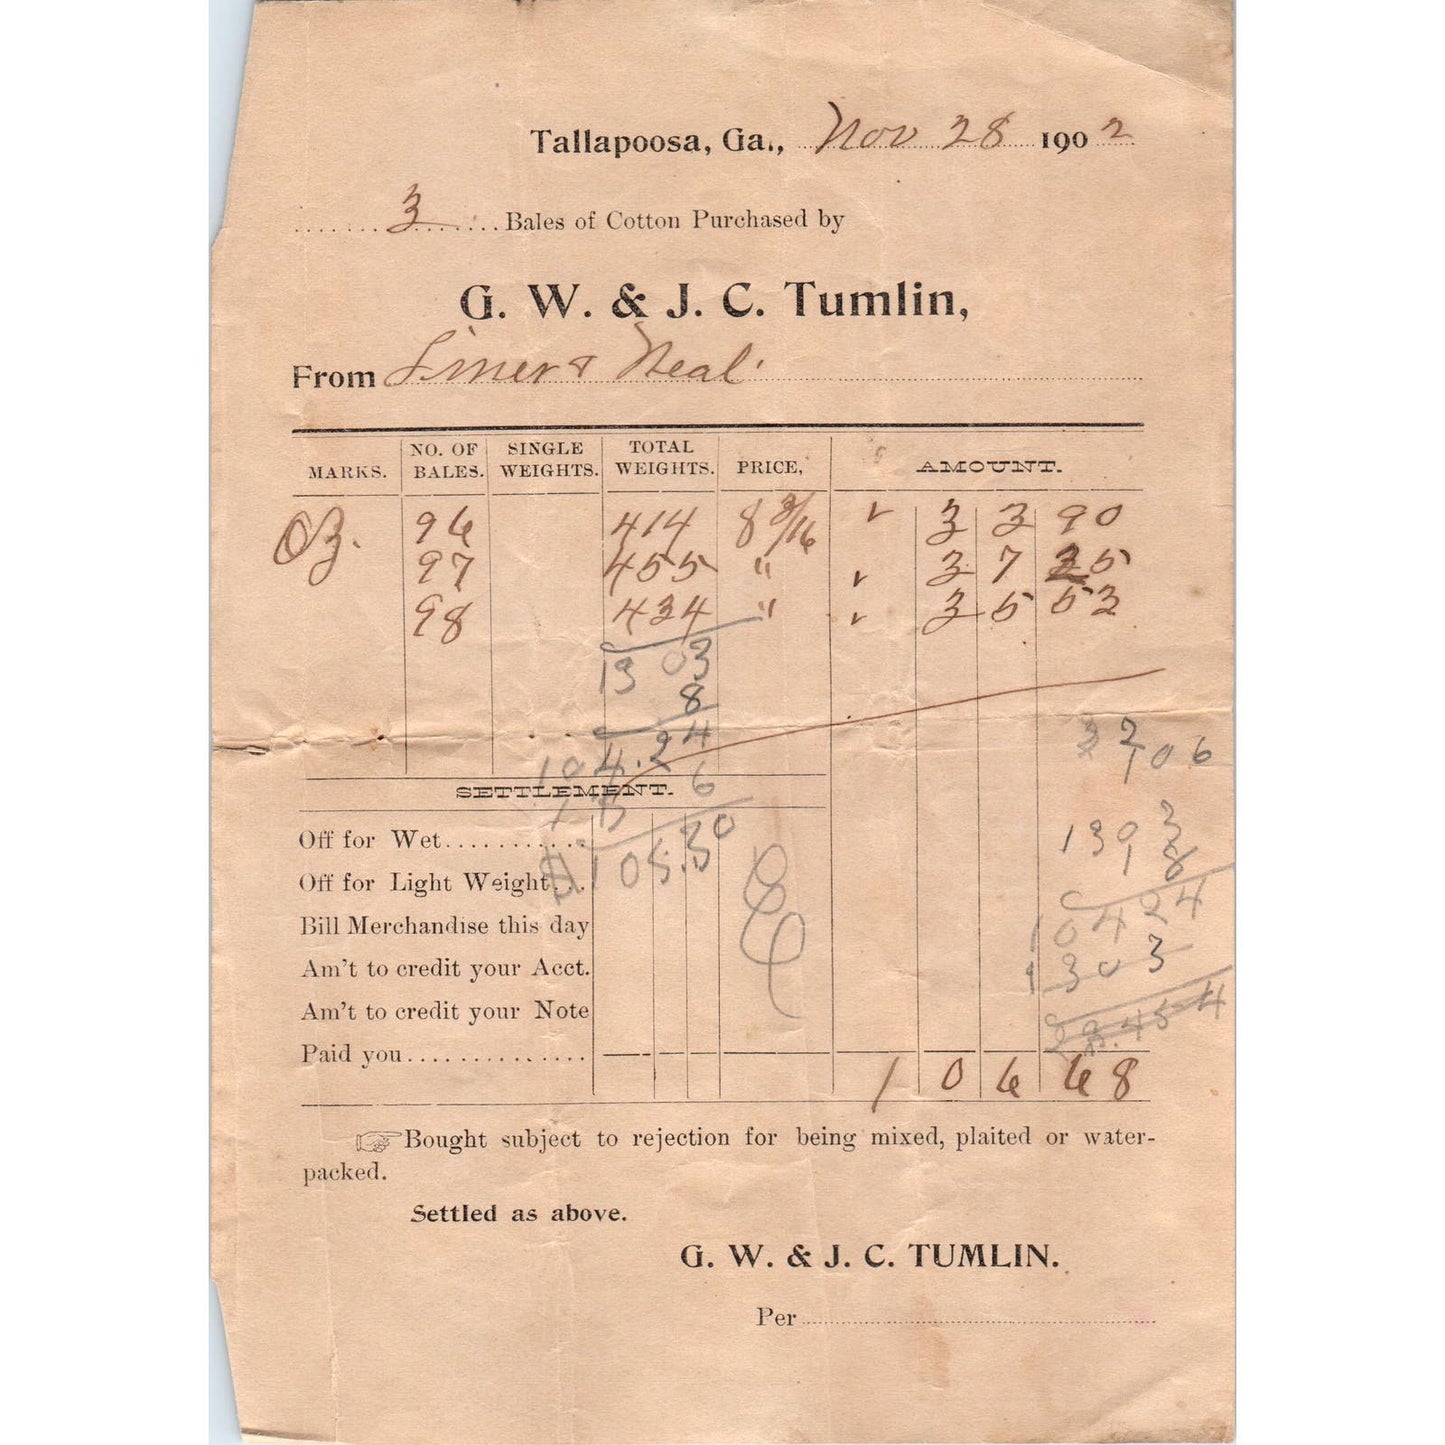 Tallapoosa, Ga., Nov 28 1902
3 Bales of Cotton Purchased by
G. W. & J. C. Tumlin,
From & Neal
MARKS. NO. OF BALES. SINGLE WEIGHTS. TOTAL WEIGHTS. PRICE, AMOUNT.
96 414 8 3/16 33 90
97 455 " 37 25
98 434 " 35 53
1303
8
104.24
6
$105.30
2706
1393
8
10424
1303
SETTLEMENT.
Off for Wet...........
Off for Light Weight...
Bill Merchandise this day
Am't to credit your Acct.
Am't to credit your Note
Paid you.............. 106 68
☞Bought subject to rejection for being mixed, plaited or water-
packed.
Settled as above.
G. W. & J. C. TUMLIN.
Per